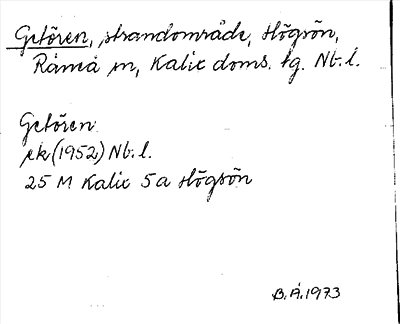 Getören, strandområde, Högsön,
Råneå sn, Kalix doms. tg. Nb. l.
Getören
ek (1952) Nb. l.
25 M Kalix 5a Högsön
B.Å. 1973